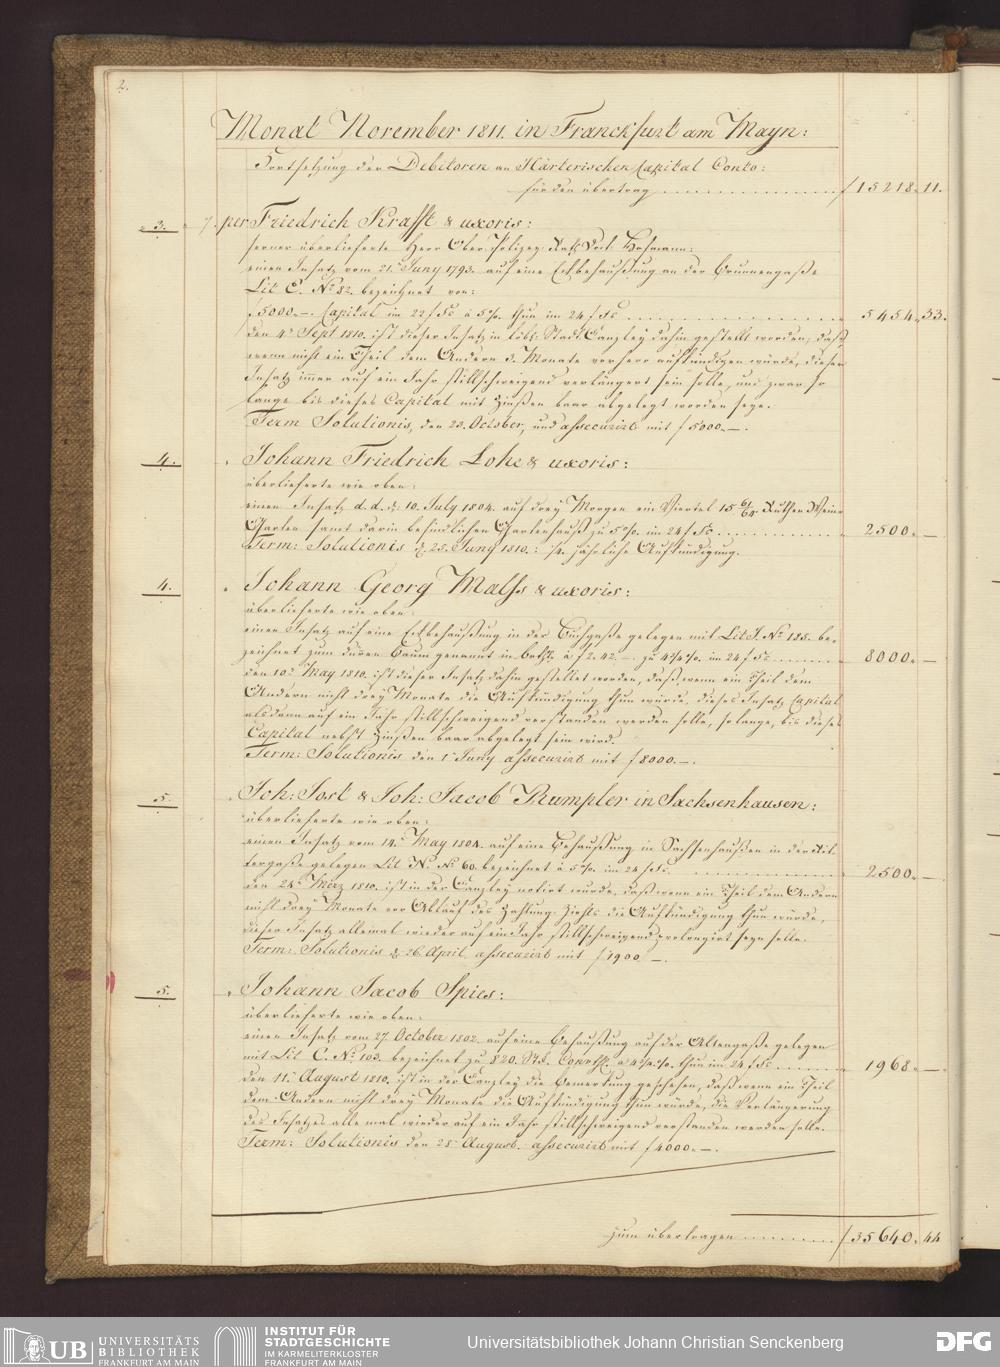 2.
Monat November 1811. in Franckfurt am Mayn:
Fortsetzung der Debitoren an Härterischen Capital Conto:
für den übertrag f 15218. 11.
3. 7. per Friedrich Krafft & uxoris:
ferner überlieferte Herr Ober Polizey Rath Doct: Hofmann:
einen Insatz vom 21. Juny 1793. auf eine Eckbehaußung an der Brunnengaße
Lit C. No 82. bezeichnet von:
f 5000.— Capital im 22 f Fs à 5 %. thun im 24 f Fs 5454. 33.
den 4n Sept 1810. ist dieser Insatz in löbl: Stadt Canzley dahin gestellt worden, daß
wenn nicht ein Theil dem Andern 3. Monate vorhero aufkündigen würde, dieser
Insatz immer auf ein Jahr stillschweigend verlängert sein solle, und zwar so
lange bis dieses Capital mit Zinßen baar abgelegt worden seye.
Term Solutionis, den 23. October, und assecurirt mit f 5000.—.
4. Johann Friedrich Lohe & uxoris:
überlieferte wie oben:
einen Insatz d. d. 10. July 1804. auf drey Morgen ein Viertel 15 61/64. Ruthen Wein
Garten samt darin befindlichen Gartenhauß zu 5 %. im 24 f Fs 2500. —
Term: Solutionis d. 25. Juny 1810.: 1/4. jährliche Aufkündigung.
4. Johann Georg Malss & uxoris:
überlieferte wie oben:
einen Insatz auf eine Eckbehaußung in der gelegen mit Lit J. No 185. be-
zeichnet zum dürren Baum genannt in à f 2. 42.— zu 4 3/4 %. im 24 f Fs 8000. —
den 10n May 1810. ist dieser Insatz dahin gestellet worden, daß, wenn ein Theil dem
Andern nicht drey Monate die Aufkündigung thun würde, dieses Insatz Capital
alsdann auf ein Jahr stillschweigend verstanden werden solle, so lange, bis dieses
Capital nebst Zinßen baar abgelegt sein wird.
Term: Solutionis den 1n Juny assecurirt mit f 8000.—.
5. Joh: Jost & Joh: Jacob Rumpler in Sachsenhausen:
überlieferte wie oben:
einen Insatz vom 14n May 1804. auf eine Behaußung in Sachsenhaußen in der Rit-
tergaße gelegen Lit N. No 60. bezeichnet à 5 %. im 24 f Fs 2500. —
den 24n Merz 1810. ist in der Canzley notirt wurde, daß wenn ein Theil dem Andern
nicht drey Monate vor Ablauf des Zahlung Ziehls die Aufkündigung thun würde,
dieser Insatz allemal wieder auf ein Jahr stillschweigend prolongirt seyn solle.
Term: Solutionis d. 26. April assecurirt mit f 1900 —.
5. Johann Jacob Spies:
überlieferte wie oben:
einen Insatz vom 27 October 1802. auf eine Behaußung auf der Altengaße gelegen
mit Lit C. No 103. bezeichnet zu 820. à 4 3/4 %. thun im 24 f Fs 1968. —
den 11. August 1810. ist in der Canzley die Bemerkung geschehen, daß wenn ein Theil
dem Andern nicht drey Monate die Aufkündigung thun würde, die Verlängerung
des Insatzes alle mal wieder auf ein Jahr stillschweigend verstanden werden solle.
Term: Solutionis den 28n August. assecurirt mit f 4000.—.
zum übertragen f 35640. 44
UB UNIVERSITÄTS
BIBLIOTHEK
FRANKFURT AM MAIN
INSTITUT FÜR
STADTGESCHICHTE
IM KARMELITERKLOSTER
FRANKFURT AM MAIN
Universitätsbibliothek Johann Christian Senckenberg
DFG